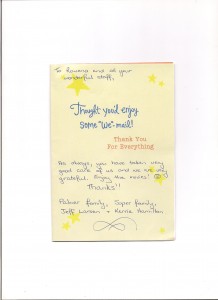 To Rowena and all your
wonderful staff,
Thought you'd enjoy
some "We"-mail!
Thank You
For Everything
As always, you have taken very
good care of us and we are very
grateful. Enjoy the
Thanks!!
Palmer family, Soper family,
Jeff Larsen + Kerrie Hamilton